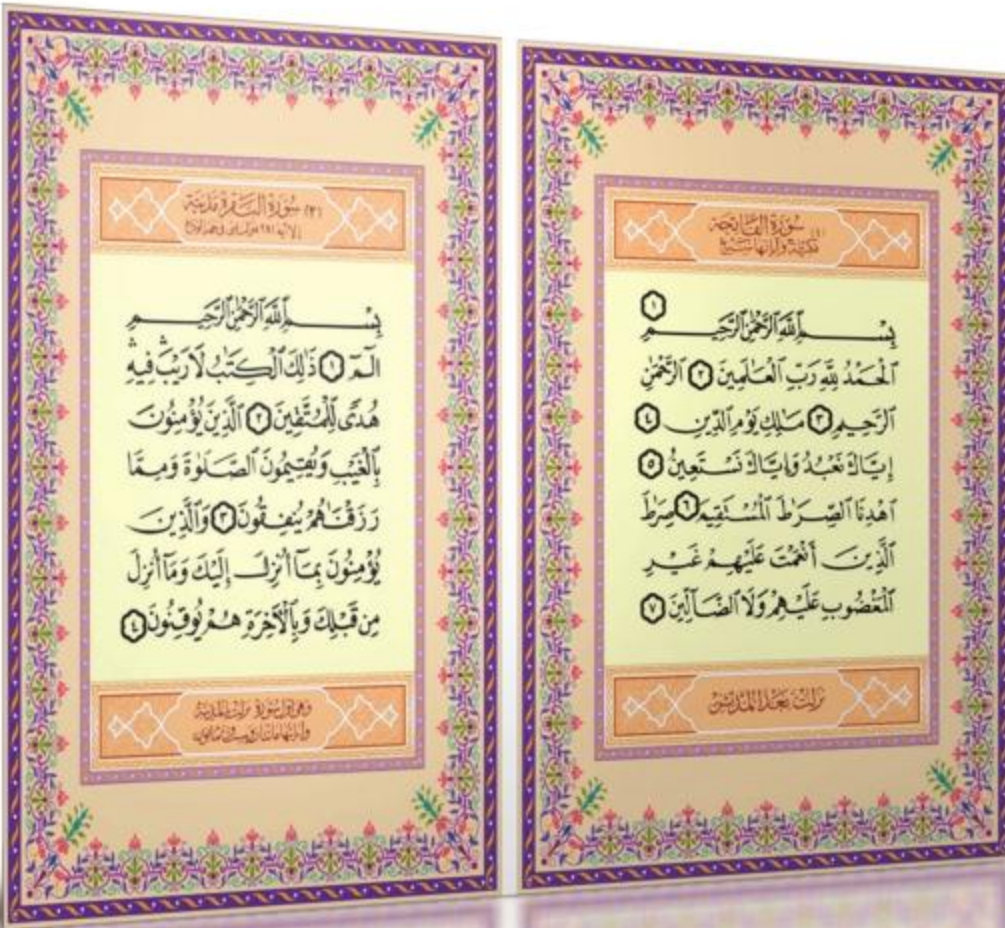 (١) سُورَةُ الفَاتِحَةِ
مَكِّيَّةٌ وَآيَاتُهَا سَبْعٌ
١
بِسْمِ ٱللَّهِ ٱلرَّحْمَٰنِ ٱلرَّحِيمِ
ٱلْحَمْدُ لِلَّهِ رَبِّ ٱلْعَالَمِينَ ٢ ٱلرَّحْمَٰنِ
ٱلرَّحِيمِ ٣ مَـٰلِكِ يَوْمِ ٱلدِّينِ ٤
إِيَّاكَ نَعْبُدُ وَإِيَّاكَ نَسْتَعِينُ ٥
ٱهْدِنَا ٱلصِّرَٰطَ ٱلْمُسْتَقِيمَ ٦ صِرَٰطَ
ٱلَّذِينَ أَنْعَمْتَ عَلَيْهِمْ غَيْرِ
ٱلْمَغْضُوبِ عَلَيْهِمْ وَلَا ٱلضَّآلِّينَ ٧
نزلت بعد المدثر
(٢) سُورَةُ البَقَرَةِ مَدَنِيَّة
بِسْمِ ٱللَّهِ ٱلرَّحْمَٰنِ ٱلرَّحِيمِ
الٓمٓ ١ ذَٰلِكَ ٱلْكِتَٰبُ لَا رَيْبَ ۛ فِيهِ ۛ
هُدًى لِّلْمُتَّقِينَ ٢ ٱلَّذِينَ يُؤْمِنُونَ
بِٱلْغَيْبِ وَيُقِيمُونَ ٱلصَّلَوٰةَ وَمِمَّا
رَزَقْنَٰهُمْ يُنفِقُونَ ٣ وَٱلَّذِينَ
يُؤْمِنُونَ بِمَآ أُنزِلَ إِلَيْكَ وَمَآ أُنزِلَ
مِن قَبْلِكَ وَبِٱلْآخِرَةِ هُمْ يُوقِنُونَ ٤
وهي أول سورة نزلت بالمدينة